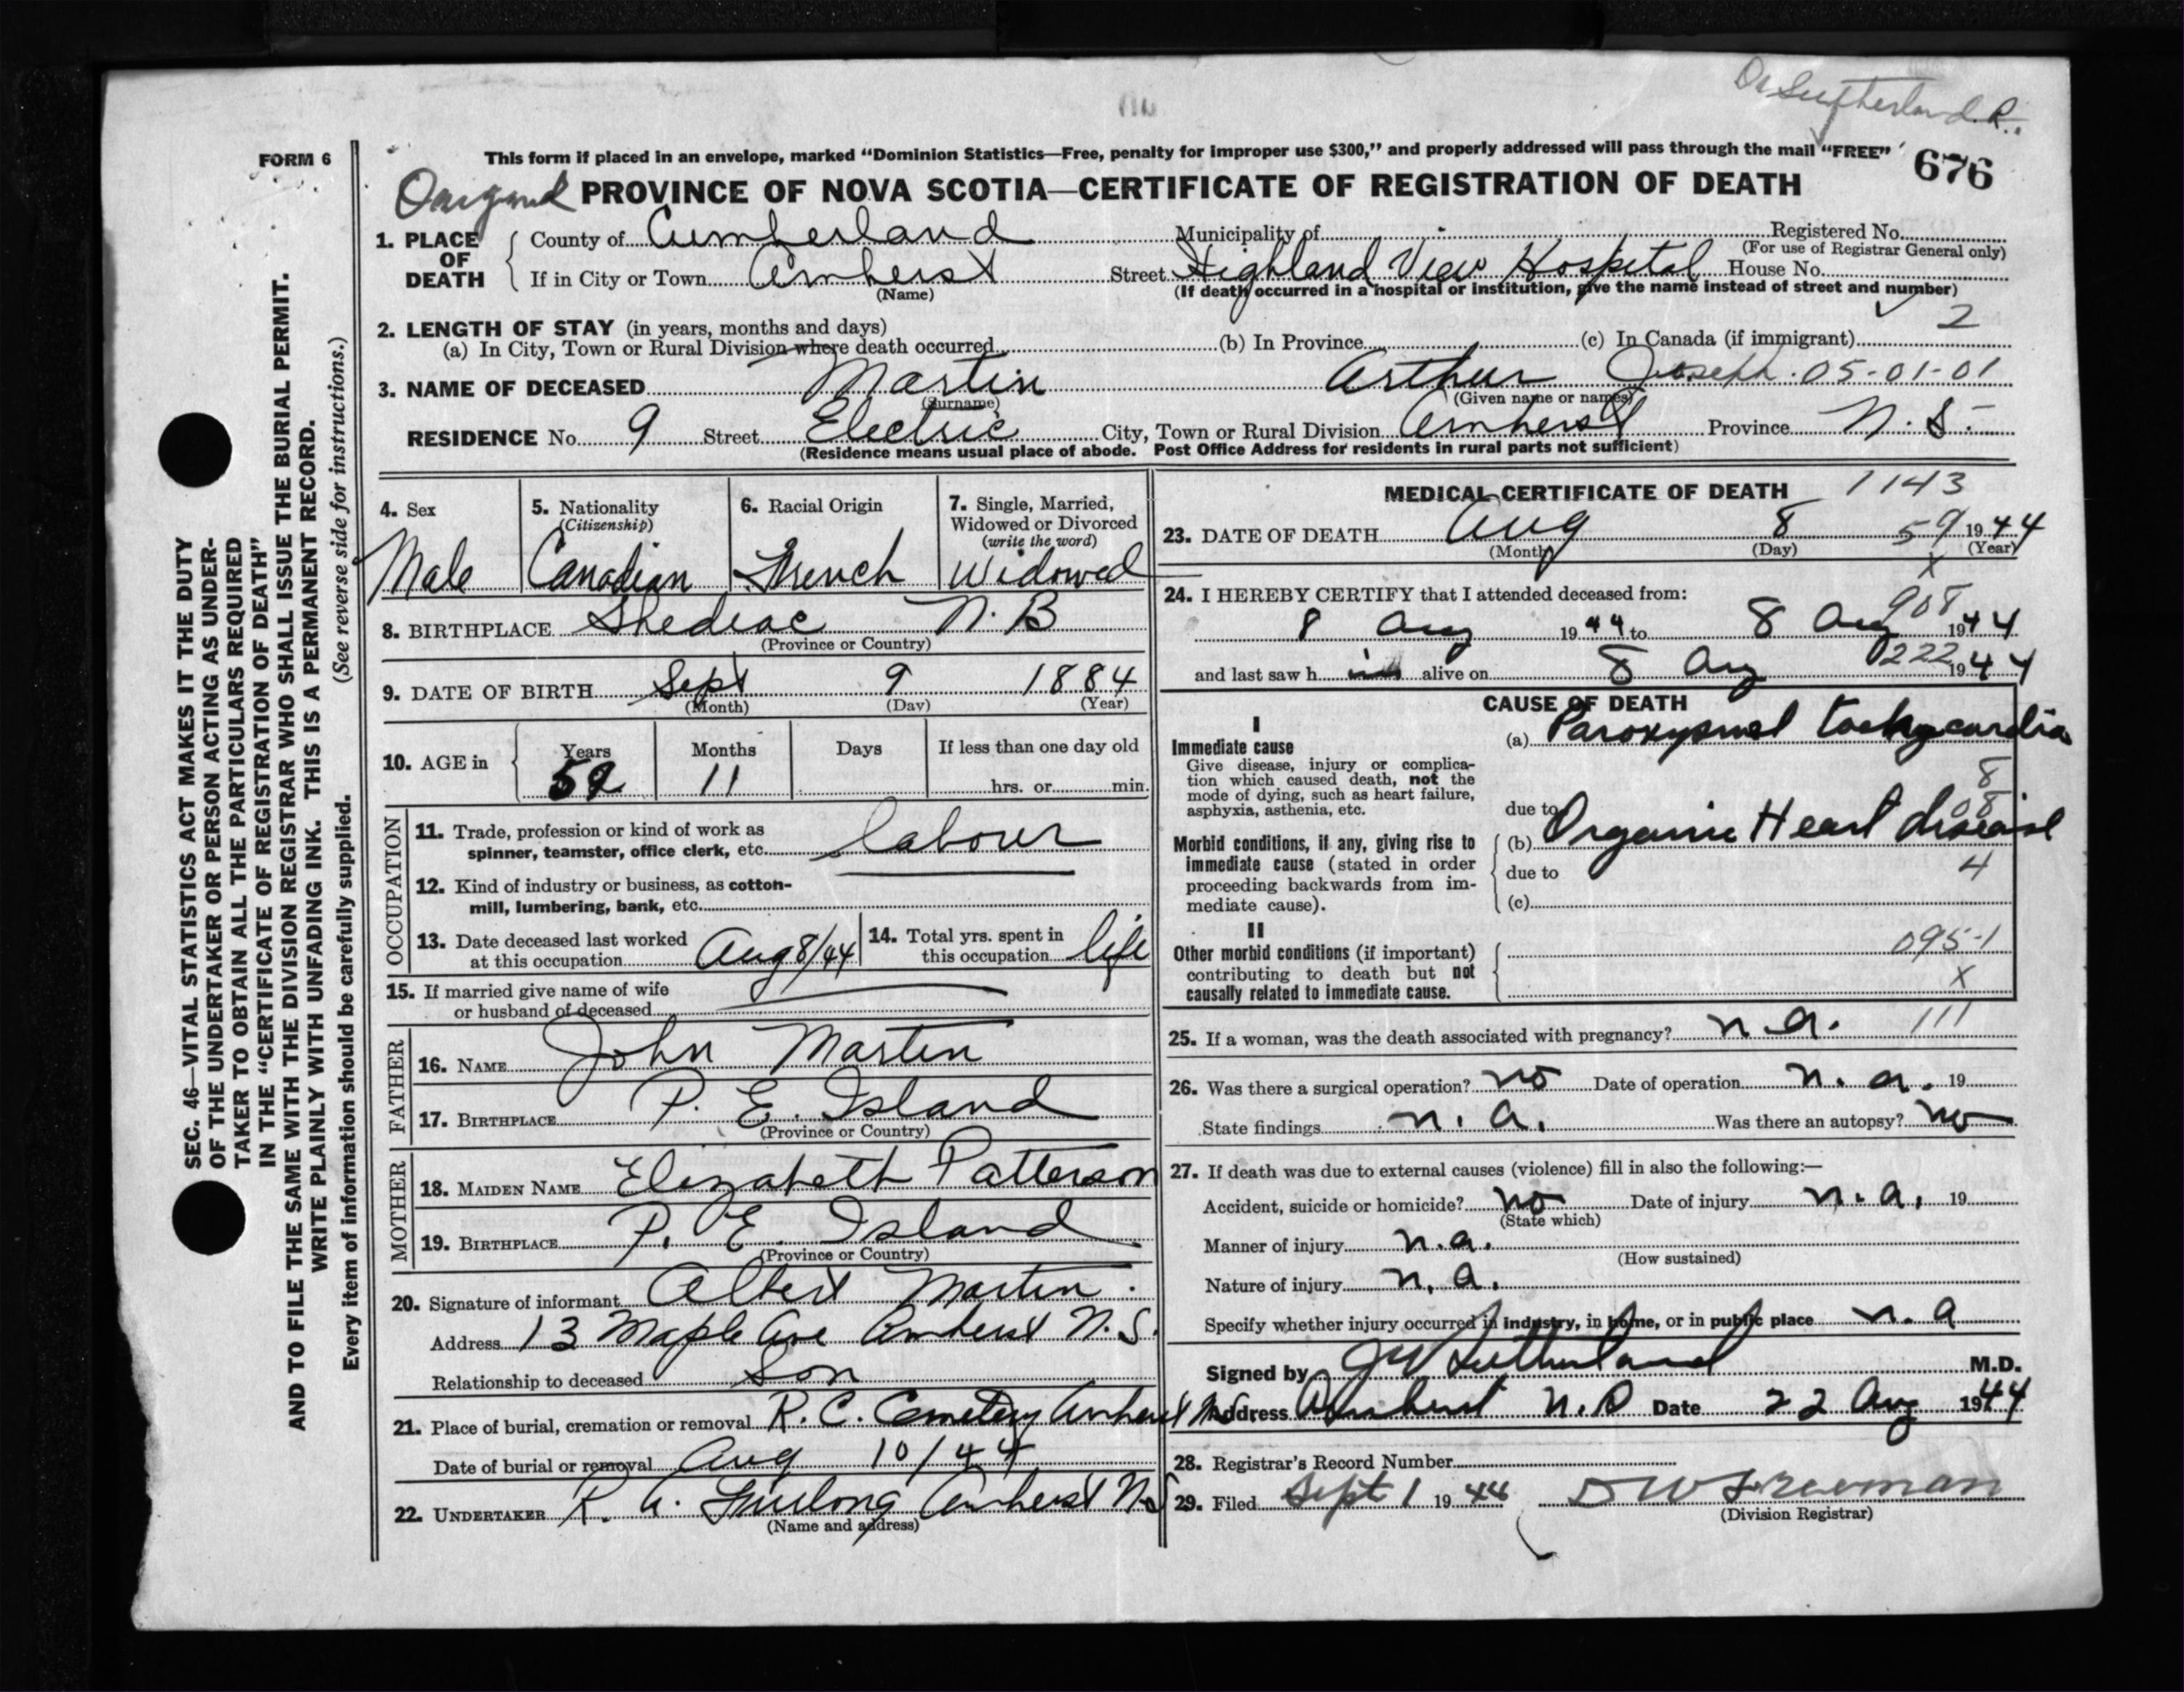 Dr Sutherland. R.
FORM 6
This form if placed in an envelope, marked “Dominion Statistics—Free, penalty for improper use $300,” and properly addressed will pass through the mail “FREE”
676
PROVINCE OF NOVA SCOTIA—CERTIFICATE OF REGISTRATION OF DEATH
1. PLACE OF DEATH { County of Cumberland Municipality of Registered No.
(For use of Registrar General only)
If in City or Town Amherst Street Highland View Hospital House No.
(Name) (If death occurred in a hospital or institution, give the name instead of street and number)
2. LENGTH OF STAY (in years, months and days) 2
(a) In City, Town or Rural Division where death occurred (b) In Province (c) In Canada (if immigrant)
3. NAME OF DECEASED Martin Arthur Joseph. 05-01-01
(Surname) (Given name or names)
RESIDENCE No. 9 Street Electric City, Town or Rural Division Amherst Province N. S.
(Residence means usual place of abode. Post Office Address for residents in rural parts not sufficient)
4. Sex
Male
5. Nationality
(Citizenship)
Canadian
6. Racial Origin
French
7. Single, Married,
Widowed or Divorced
(write the word)
Widowed
8. BIRTHPLACE Shediac N. B
(Province or Country)
9. DATE OF BIRTH Sept 9 1884
(Month) (Day) (Year)
10. AGE in { Years Months Days If less than one day old
59 11 hrs. or min.
OCCUPATION
11. Trade, profession or kind of work as
spinner, teamster, office clerk, etc. labour
12. Kind of industry or business, as cotton-
mill, lumbering, bank, etc.
13. Date deceased last worked
at this occupation Aug 8/44
14. Total yrs. spent in
this occupation life
15. If married give name of wife
or husband of deceased
FATHER
16. NAME John Martin
17. BIRTHPLACE P. E. Island
(Province or Country)
MOTHER
18. MAIDEN NAME Elizabeth Patterson
19. BIRTHPLACE P. E. Island
(Province or Country)
20. Signature of informant Albert Martin.
Address 13 Maple Ave Amherst N. S.
Relationship to deceased Son
21. Place of burial, cremation or removal R. C. Cemetery Amherst NS
Date of burial or removal Aug 10/44
22. UNDERTAKER R. A. Furlong Amherst NS
(Name and address)
MEDICAL CERTIFICATE OF DEATH 1143
23. DATE OF DEATH Aug 8 59 1944
(Month) (Day) (Year)
X
24. I HEREBY CERTIFY that I attended deceased from:
908
8 Aug 1944 to 8 Aug 1944
and last saw h im alive on 8 Aug 0222 1944
CAUSE OF DEATH
I
Immediate cause
Give disease, injury or complica-
tion which caused death, not the
mode of dying, such as heart failure,
asphyxia, asthenia, etc.
(a) Paroxysmal tachycardia
8
due to
8
Morbid conditions, if any, giving rise to
immediate cause (stated in order
proceeding backwards from im-
mediate cause).
(b) Organic Heart disease
due to 4
(c)
II
Other morbid conditions (if important)
contributing to death but not
causally related to immediate cause.
095-1
X
25. If a woman, was the death associated with pregnancy? n.a. 111
26. Was there a surgical operation? no Date of operation n. a. 19
State findings n. a. Was there an autopsy? no
27. If death was due to external causes (violence) fill in also the following:—
Accident, suicide or homicide? no Date of injury n. a. 19
(State which)
Manner of injury n.a.
(How sustained)
Nature of injury n. a.
Specify whether injury occurred in industry, in home, or in public place n. a
Signed by JW Sutherland M.D.
Address Amherst N.S Date 22 Aug 1944
28. Registrar's Record Number
29. Filed Sept 1 1944
(Division Registrar)
SEC. 46—VITAL STATISTICS ACT MAKES IT THE DUTY
OF THE UNDERTAKER OR PERSON ACTING AS UNDER-
TAKER TO OBTAIN ALL THE PARTICULARS REQUIRED
IN THE “CERTIFICATE OF REGISTRATION OF DEATH”
AND TO FILE THE SAME WITH THE DIVISION REGISTRAR WHO SHALL ISSUE THE BURIAL PERMIT.
WRITE PLAINLY WITH UNFADING INK. THIS IS A PERMANENT RECORD.
Every item of information should be carefully supplied. (See reverse side for instructions.)